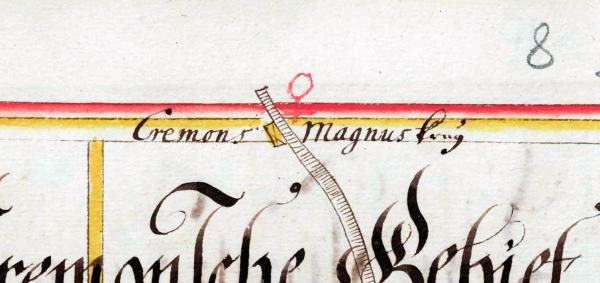 8
♀
Cremons Magnus krug
Cremonsche Gebiet